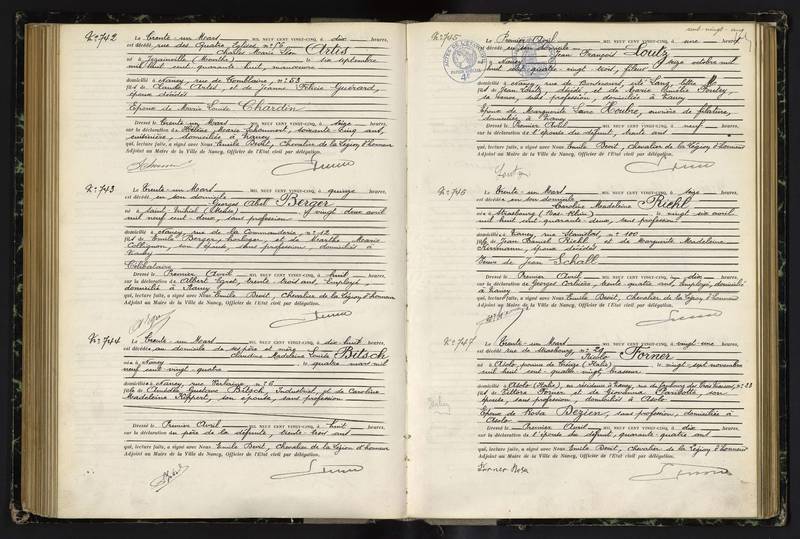 N° 742
Le Trente-un Mars MIL NEUF CENT VINGT-CINQ, à dix heures,
est décédé rue des Quatre Eglises, n° 56
Charles Marie Léon Artis
né à Jezainville (Meurthe) le six septembre
mil huit cent quarante huit, manoeuvre
domicilié à Nancy, rue de Tomblaine, n° 53
fils de Claude Artis, et de Jeanne Félicie Guérard,
époux décédés
Epoux de Marie Louise Charetin
Dressé le Trente-un Mars MIL NEUF CENT VINGT-CINQ, à seize heures,
sur la déclaration de Hélène Marie soixante cinq ans,
domiciliée à Nancy
qui, lecture faite, a signé avec Nous Emile Devit, Chevalier de la Légion d'honneur
Adjoint au Maire de la Ville de Nancy, Officier de l'État civil par délégation.
N° 743
Le Trente-un Mars MIL NEUF CENT VINGT-CINQ, à quinze heures,
est décédé en son domicile
Georges Abel Berger
né à Saint-Mihiel (Meuse) le vingt deux avril
mil neuf cent deux, sans profession
domicilié à Nancy, rue de la Commanderie, n° 12
fils de Emile Berger, horloger, et de Marthe Marie
Collignon, son épouse, sans profession, domiciliés à
Nancy
Célibataire
Dressé le Premier Avril MIL NEUF CENT VINGT-CINQ, à huit heures,
sur la déclaration de Albert trente-trois ans, employé,
domicilié à Nancy
qui, lecture faite, a signé avec Nous Emile Devit, Chevalier de la Légion d'honneur
Adjoint au Maire de la Ville de Nancy, Officier de l'État civil par délégation.
N° 744
Le Trente-un Mars MIL NEUF CENT VINGT-CINQ, à dix-huit heures,
est décédée au domicile de ses père et mère
Claudine Madeleine Louise Bitsch
née à Nancy le quatre mars mil
neuf cent vingt-quatre
domiciliée à Nancy, rue Verlaine, n° 6
fille de Gustave Bitsch, industriel, et de Caroline
Madeleine Röpfert, son épouse, sans profession
Dressé le Premier Avril MIL NEUF CENT VINGT-CINQ, à huit heures,
sur la déclaration du père de la défunte, trente trois ans
qui, lecture faite, a signé avec Nous Emile Devit, Chevalier de la Légion d'honneur
Adjoint au Maire de la Ville de Nancy, Officier de l'État civil par délégation.
N° 745
Le Premier Avril MIL NEUF CENT VINGT-CINQ, à une heure
est décédé en son domicile
Jean François Loutz
né à Nancy le seize octobre mil
huit cent quatre-vingt trois, fileur
domicilié à Nancy, rue de cité Lang, lettre M
fils de Jean Loutz, décédé, et de Marie
sa veuve, sans profession, domiciliée à Nancy
Epoux de Marguerite ouvrière de filature,
domiciliée à Nancy
Dressé le Premier Avril MIL NEUF CENT VINGT-CINQ, à neuf heures,
sur la déclaration de l'épouse du défunt, trente ans
qui, lecture faite, a signé avec Nous Emile Devit, Chevalier de la Légion d'honneur
Adjoint au Maire de la Ville de Nancy, Officier de l'État civil par délégation.
N° 746
Le Trente-un Mars MIL NEUF CENT VINGT-CINQ, à seize heures,
est décédée en son domicile
Caroline Madeleine Riehl
née à Strasbourg (Bas-Rhin) le vingt six avril
mil huit cent quarante deux, sans profession
domiciliée à Nancy, rue Stanislas, n° 100
fille de Jean Daniel Riehl et de Marguerite Madeleine
Herrmann, époux décédés
Veuve de Jean Schall
Dressé le Premier Avril MIL NEUF CENT VINGT-CINQ, à dix heures,
sur la déclaration de Georges trente-quatre ans, employé, domicilié
à Nancy
qui, lecture faite, a signé avec Nous Emile Devit, Chevalier de la Légion d'honneur
Adjoint au Maire de la Ville de Nancy, Officier de l'État civil par délégation.
N° 747
Le Trente-un Mars MIL NEUF CENT VINGT-CINQ, à vingt-une heures,
est décédé rue de Strasbourg, n° 29
Forner
né à Asolo, province de Trévise (Italie) le vingt sept novembre
mil huit cent quatre-vingt,
domicilié à Asolo (Italie), en résidence à Nancy, rue du faubourg des Trois Maisons, n° 23
fils de Vittore Forner et de Giovanna son
épouse, sans profession, domiciliés à Asolo
Epoux de Rosa Bezien, sans profession, domiciliée à
Asolo
Dressé le Premier Avril MIL NEUF CENT VINGT-CINQ, à dix heures,
sur la déclaration de l'épouse du défunt, quarante-quatre ans
qui, lecture faite, a signé avec Nous Emile Devit, Chevalier de la Légion d'honneur
Adjoint au Maire de la Ville de Nancy, Officier de l'État civil par délégation.
Forner Rosa